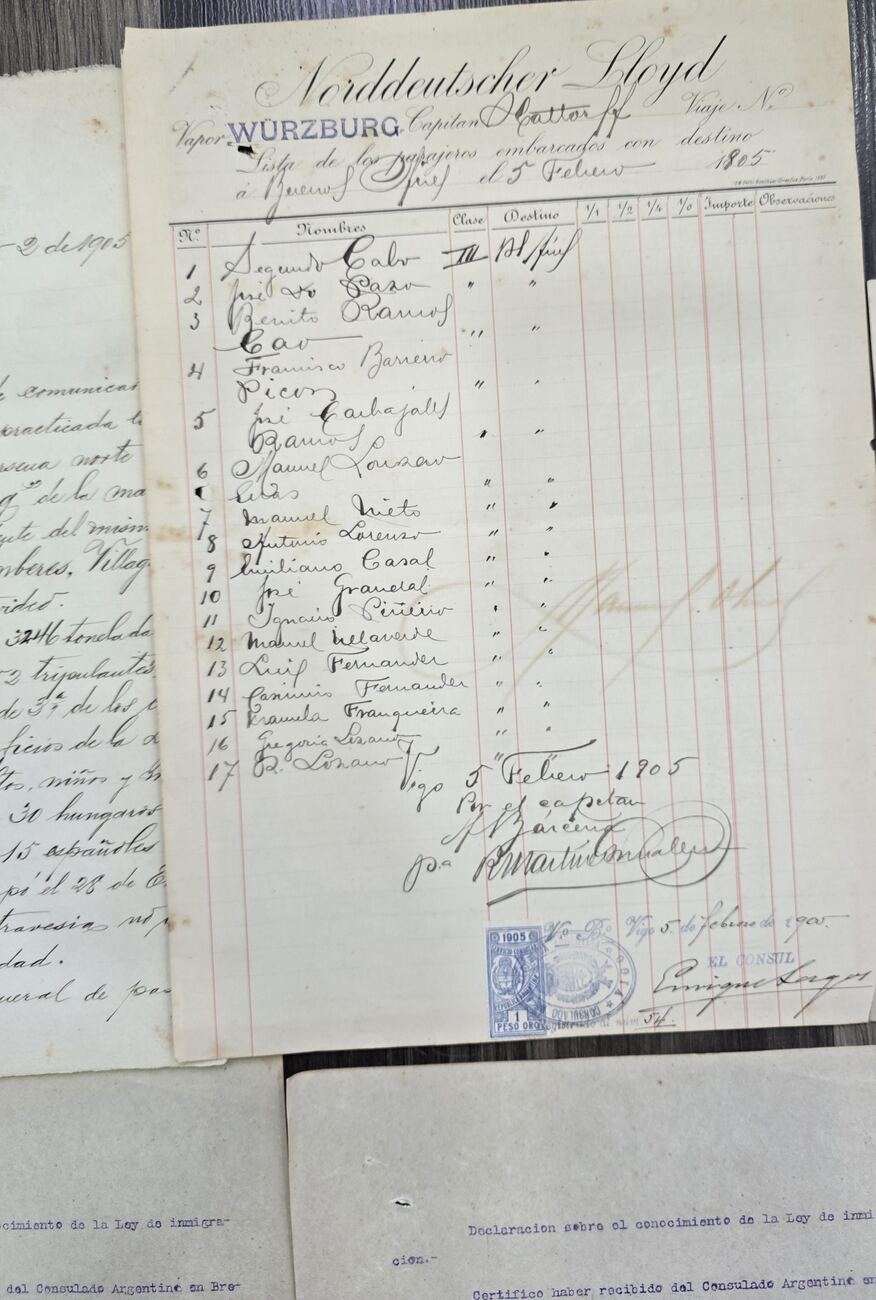 -2 de 1905
e comunicar
practicada l
rsena norte
de la ma
te del mism
mberes, Villag
video.
3246 tonelada
2 tripulantes
de 3ª de los
ficios de la
tos, niños y
30 hungaros
15 españoles
pó el 28 de E
travesia no
dad.
neral de pas
Norddeutscher Lloyd
Vapor WÜRZBURG Capitan Hattorff Viaje Nº
Lista de los pasajeros embarcados con destino
á Buenos Aires el 5 Febrero 1905
Nº Nombres Clase Destino 1/1 1/2 1/4 1/0 Importe Observaciones
1 Segundo Calvo III Bs Aires
2 José Do Pazo " "
3 Benito Ramos
Cao " "
4 Francisco Barreiro
Picon " "
5 José Carbajales
Ramos " "
6 Manuel Lourzao
" "
7 Manuel Nieto " "
8 Antonio Lorenzo " "
9 Emiliano Casal " "
10 José Grandal " "
11 Ignacio Piñeiro " "
12 Manuel Villaverde " "
13 Luis Fernandez " "
14 Casimiro Fernandez " "
15 Manuela Franqueira " "
16 Gregoria Lozano " "
17 R. Lozano " "
Vigo 5 Febrero 1905
Por el capitan
Bárcena
p.a
1905
REPUBLICA ARGENTINA
1
PESO ORO
Vº Bº Vigo 5 de febrero de 1905
EL CONSUL
CONSULADO
54
cimiento de la Ley de inmigra-
del Consulado Argentino en Bre-
Declaracion sobre el conocimiento de la Ley de inmi
cion.-
Certifico haber recibido del Consulado Argentino en